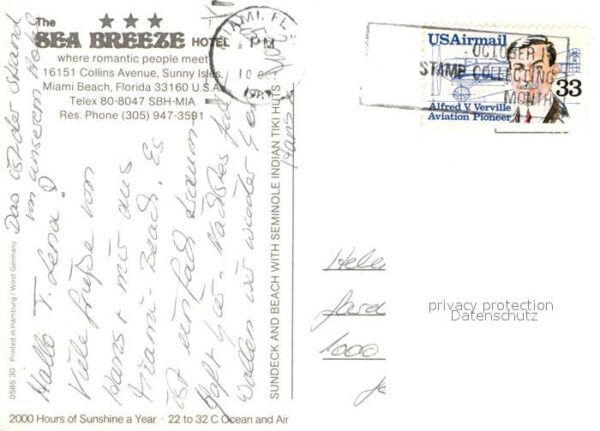 The
★ ★ ★
SEA BREEZE HOTEL
where romantic people meet
16151 Collins Avenue, Sunny Isles,
Miami Beach, Florida 33160 U.S.A.
Telex 80-8047 SBH-MIA
Res. Phone (305) 947-3591
MIAMI, FL
PM
USAirmail
OCTOBER
STAMP COLLECTING
MONTH
33
Alfred V. Verville
Aviation Pioneer
Das ist der Strand
von unserem
Hallo T. Lena!
Viele Grüße von
Hans + mir aus
Miami-Beach. Es
ist einfach traum-
haft hier. Nächstes Jahr
wollen wir wieder
Hans
SUNDECK AND BEACH WITH SEMINOLE INDIAN TIKI HUTS
0585 30 Printed in Hamburg / West Germany
1000
privacy protection
Datenschutz
2000 Hours of Sunshine a Year · 22 to 32 C Ocean and Air